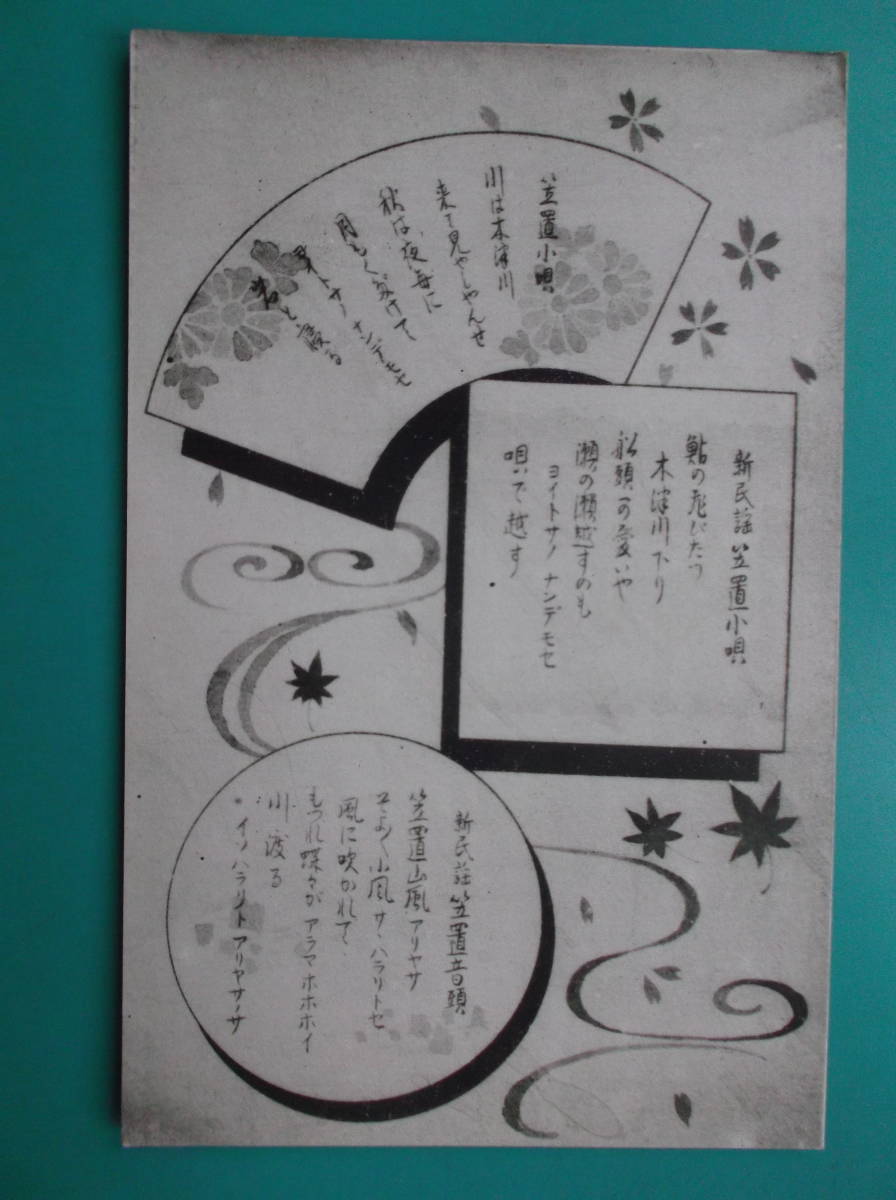 笠置小唄
川は木津川
来て見やしやんせ
秋は夜毎に
月もくだけて
ヨイトサノ ナンデモセ
岩と寝る
新民謡 笠置小唄
鮎の飛びたつ
木津川下り
船頭可愛いや
瀬の瀬越すのも
ヨイトサノ ナンデモセ
唄で越す
新民謡 笠置音頭
笠置山風アリヤサ
そよ〳〵小風サ、ハラリトセ
風に吹かれて
もつれ蝶々がアラマホホホイ
川渡る
イソハラリトアリヤサノサ